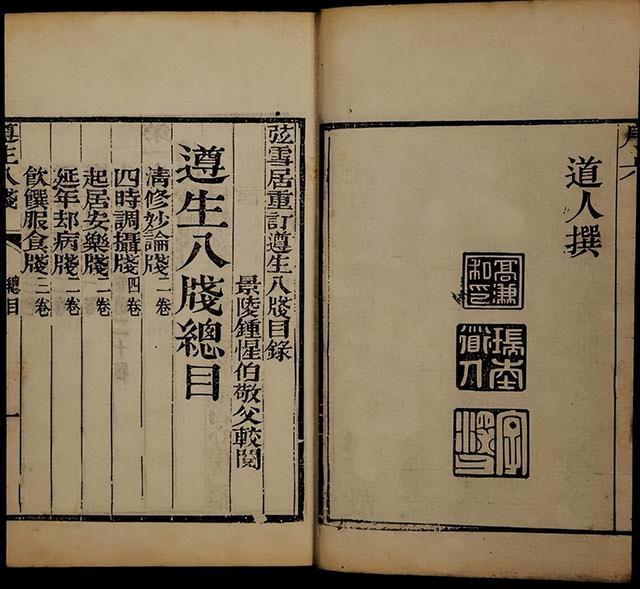 道人撰
弦雪居重訂遵生八牋目錄
景陵鍾惺伯敬父較閱
遵生八牋總目
清修妙論牋二卷
四時調攝牋四卷
起居安樂牋二卷
延年却病牋二卷
飲饌服食牋三卷
遵生八牋 總目 一